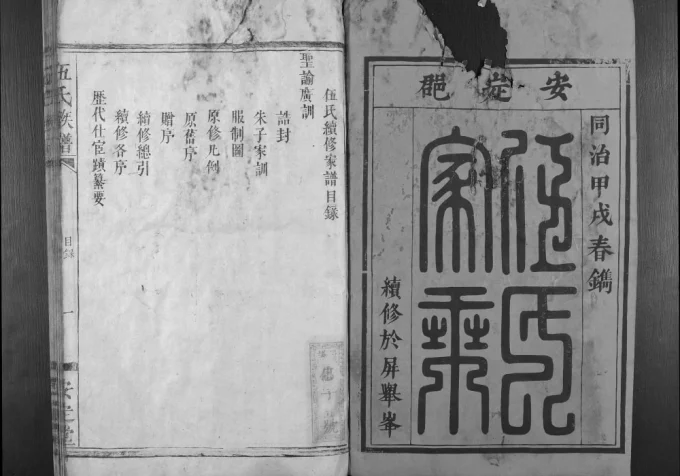 安定郡
同治甲戌春鐫
伍氏
家乘
續修於屏舉峯
伍氏續修家譜目錄
聖諭廣訓
誥封
朱子家訓
服制圖
原修凡例
原舊序
贈序
續修總引
續修各序
歷代仕宦蹟纂要
伍氏族譜
目錄
一
安定堂